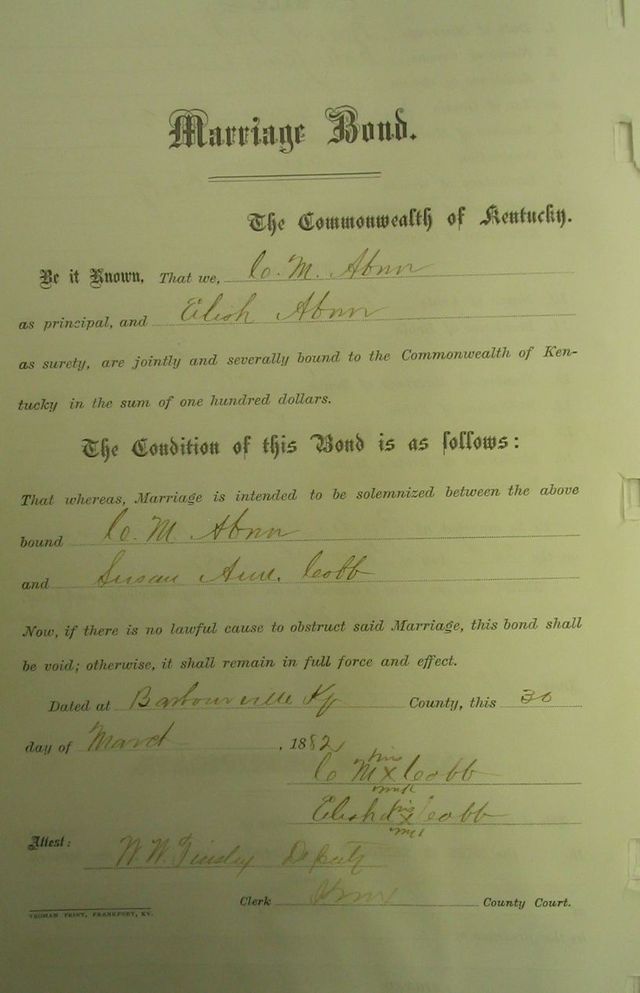 Marriage Bond.
The Commonwealth of Kentucky.
Be it Known, That we, C. M. Abner
as principal, and Elish Abner
as surety, are jointly and severally bound to the Commonwealth of Ken-
tucky in the sum of one hundred dollars.
The Condition of this Bond is as follows:
That whereas, Marriage is intended to be solemnized between the above
bound C. M. Abner
and Susan Ane. Cobb
Now, if there is no lawful cause to obstruct said Marriage, this bond shall
be void; otherwise, it shall remain in full force and effect.
Dated at Barbourville Ky County, this 30
day of March, 1882
his
C M X Cobb
mark
his
Elisha X Cobb
mark
Attest: W. W. Tinsley Deputy
Clerk Knox County Court.
YEOMAN PRINT, FRANKFORT, KY.